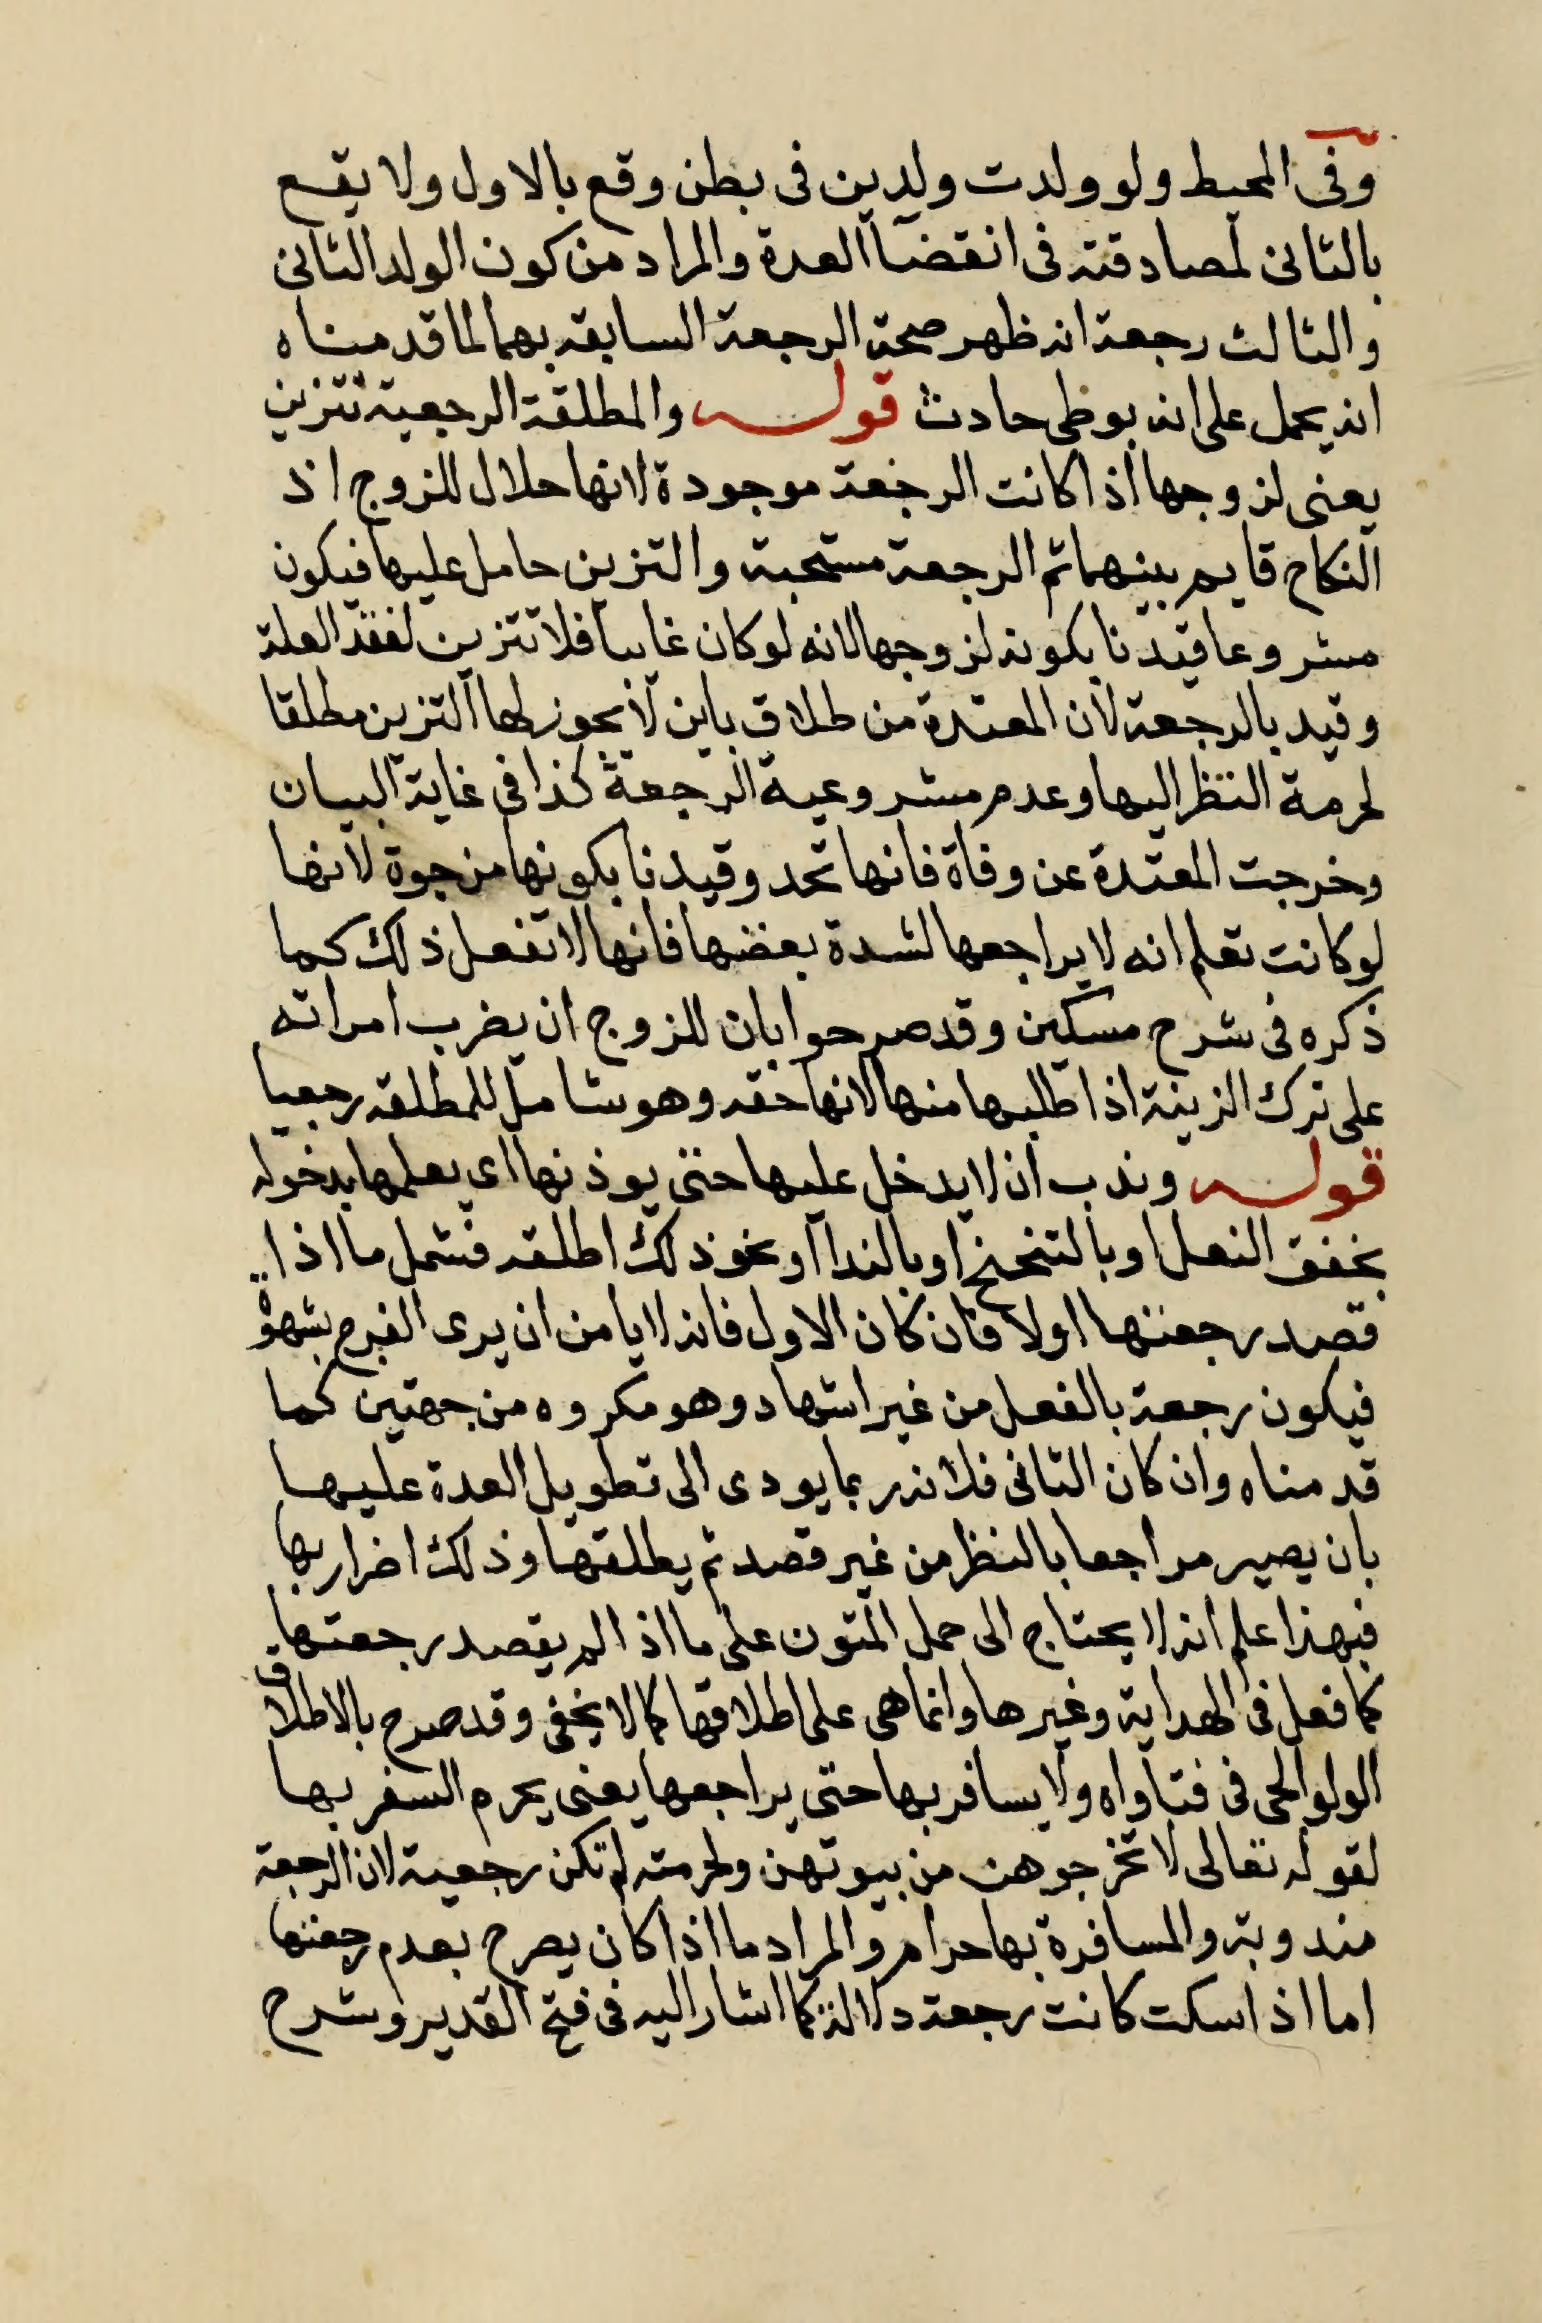 وفى المحيط ولو ولدت ولدين فى بطن وقع بالاول ولا يقع
بالثانى لمصادقته فى انقضآ العدة والمراد من كون الولد الثانى
والثالث رجعة انه ظهر صحة الرجعة السابقه بهما لما قدمناه
انه يحمل على انه بوطى حادث قوله والمطلقة الرجعية تتزين
يعنى لزوجها اذا كانت الرجعة موجودة لانها حلال للزوج اذ
النكاح قايم بينهما ثم الرجعة مستحبة والتزين حامل عليها فيكون
مشروعا قيدنا بكونه لزوجها لانه لو كان غايبا فلا تتزين لفقد العلة
وقيد بالرجعة لان المعتدة من طلاق باين لا يجوز لها التزين مطلقا
لحرمة النظر اليها وعدم مشروعية الرجعة كذا فى غاية البيان
وخرجت المعتدة عن وفاة فانها تحد وقيدنا بكونها مرجوة لانها
لو كانت تعلم انه لا يراجعها لشدة بعضها فانها لا تفعل ذلك كما
ذكره فى شرح مسكين وقد صرحوا بان للزوج ان يضرب امراته
على ترك الزينة اذا طلبها منها لانها حقه وهو شامل للمطلقه رجعيا
قوله وندب ان لا يدخل عليها حتى يوذنها اى يعلمها بدخوله
بخفق النعل او بالتنحنح او بالندا او نحو ذلك اطلقه فشمل ما اذا
قصد رجعتها اولا فان كان الاول فانه لا يامن ان يرى الفرج بشهوة
فيكون رجعة بالفعل من غير اشهاد وهو مكروه من جهتين كما
قدمناه وان كان الثانى فلانه ربما يودى الى تطويل العدة عليها
بان يصير مراجعا بالنظر من غير قصد ثم يطلقها وذلك اضرار بها
فبهذا علم انه لا يحتاج الى حمل المتون على ما اذا لم يقصد رجعتها
كما فعل فى الهداية وغيرها وانما هى على اطلاقها كما لا يخفى وقد صرح بالاطلاق
الولوالجى فى فتاواه ولا يسافر بها حتى يراجعها يعنى يحرم السفر بها
لقوله تعالى لا تخرجوهن من بيوتهن ولحرمته لم تكن رجعية لان الرجعة
مندوبة والمسافرة بها حرام والمراد ما اذا كان يصرح بعدم رجعتها
اما اذا سكت كانت رجعة دلالة كما اشار اليه فى فتح القدير وشرح